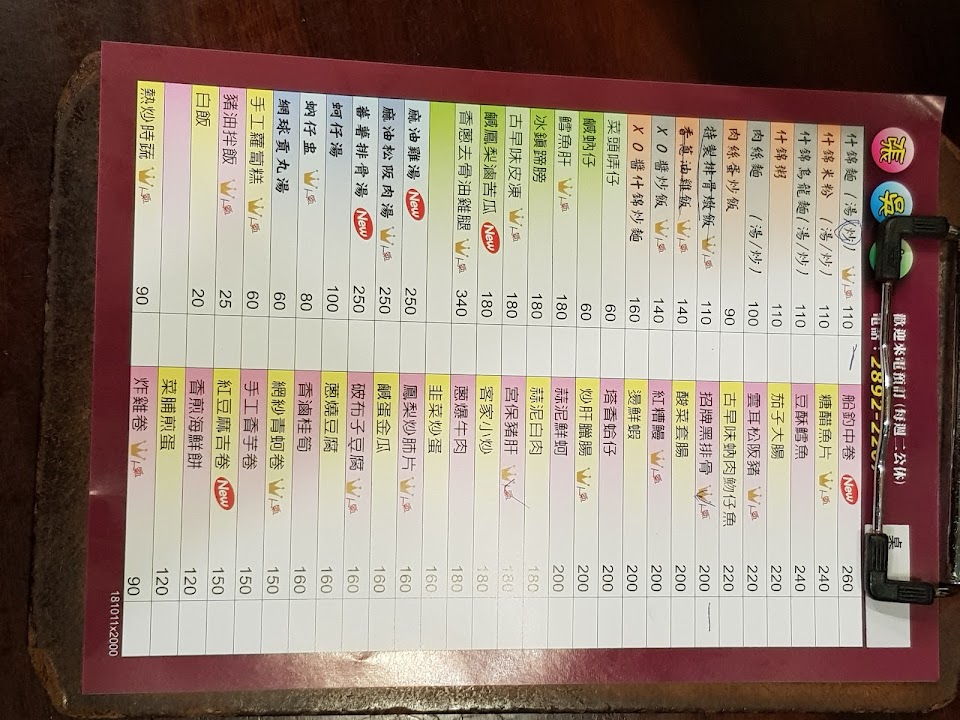 張
吳
歡迎來電預訂(每週二公休)
電話：2892-22
桌
什錦麵(湯/炒) 110
什錦米粉(湯/炒) 110
什錦烏龍麵(湯/炒) 110
什錦粥 110
肉絲麵(湯/炒) 100
肉絲蛋炒飯 90
特製排骨燉飯 110
香蔥油雞飯 140
XO醬炒飯 140
XO醬什錦炒麵 160
菜頭蒔仔 60
鹹蚋仔 60
鱈魚肝 180
冰鎮蹄膀 180
古早味皮凍 180
鹹鳳梨滷苦瓜 New 180
香蔥去骨油雞腿 340
麻油雞湯 New 250
麻油松阪肉湯 250
蕃薯排骨湯 New 250
蚵仔湯 100
蚋仔盅 80
網球貢丸湯 60
手工蘿蔔糕 60
豬油拌飯 25
白飯 20
熱炒時蔬 90
船釣中卷 New 260
糖醋魚片 240
豆酥鱈魚 240
茄子大腸 220
雲耳松阪豬 220
古早味蚋肉魩仔魚 220
招牌黑排骨 200
酸菜套腸 200
紅糟鰻 200
燙鮮蝦 200
塔香蛤仔 200
炒肝臘腸 200
蒜泥鮮蚵 200
蒜泥白肉 180
宮保豬肝 180
客家小炒 180
蔥爆牛肉 180
韭菜炒蛋 160
鳳梨炒肺片 160
鹹蛋金瓜 160
破布子豆腐 160
蔥燒豆腐 160
香滷桂筍 160
網紗青蚵卷 150
手工香芋卷 150
紅豆麻吉卷 New 150
香煎海鮮餅 120
菜脯煎蛋 120
炸雞卷 90
181011x2000